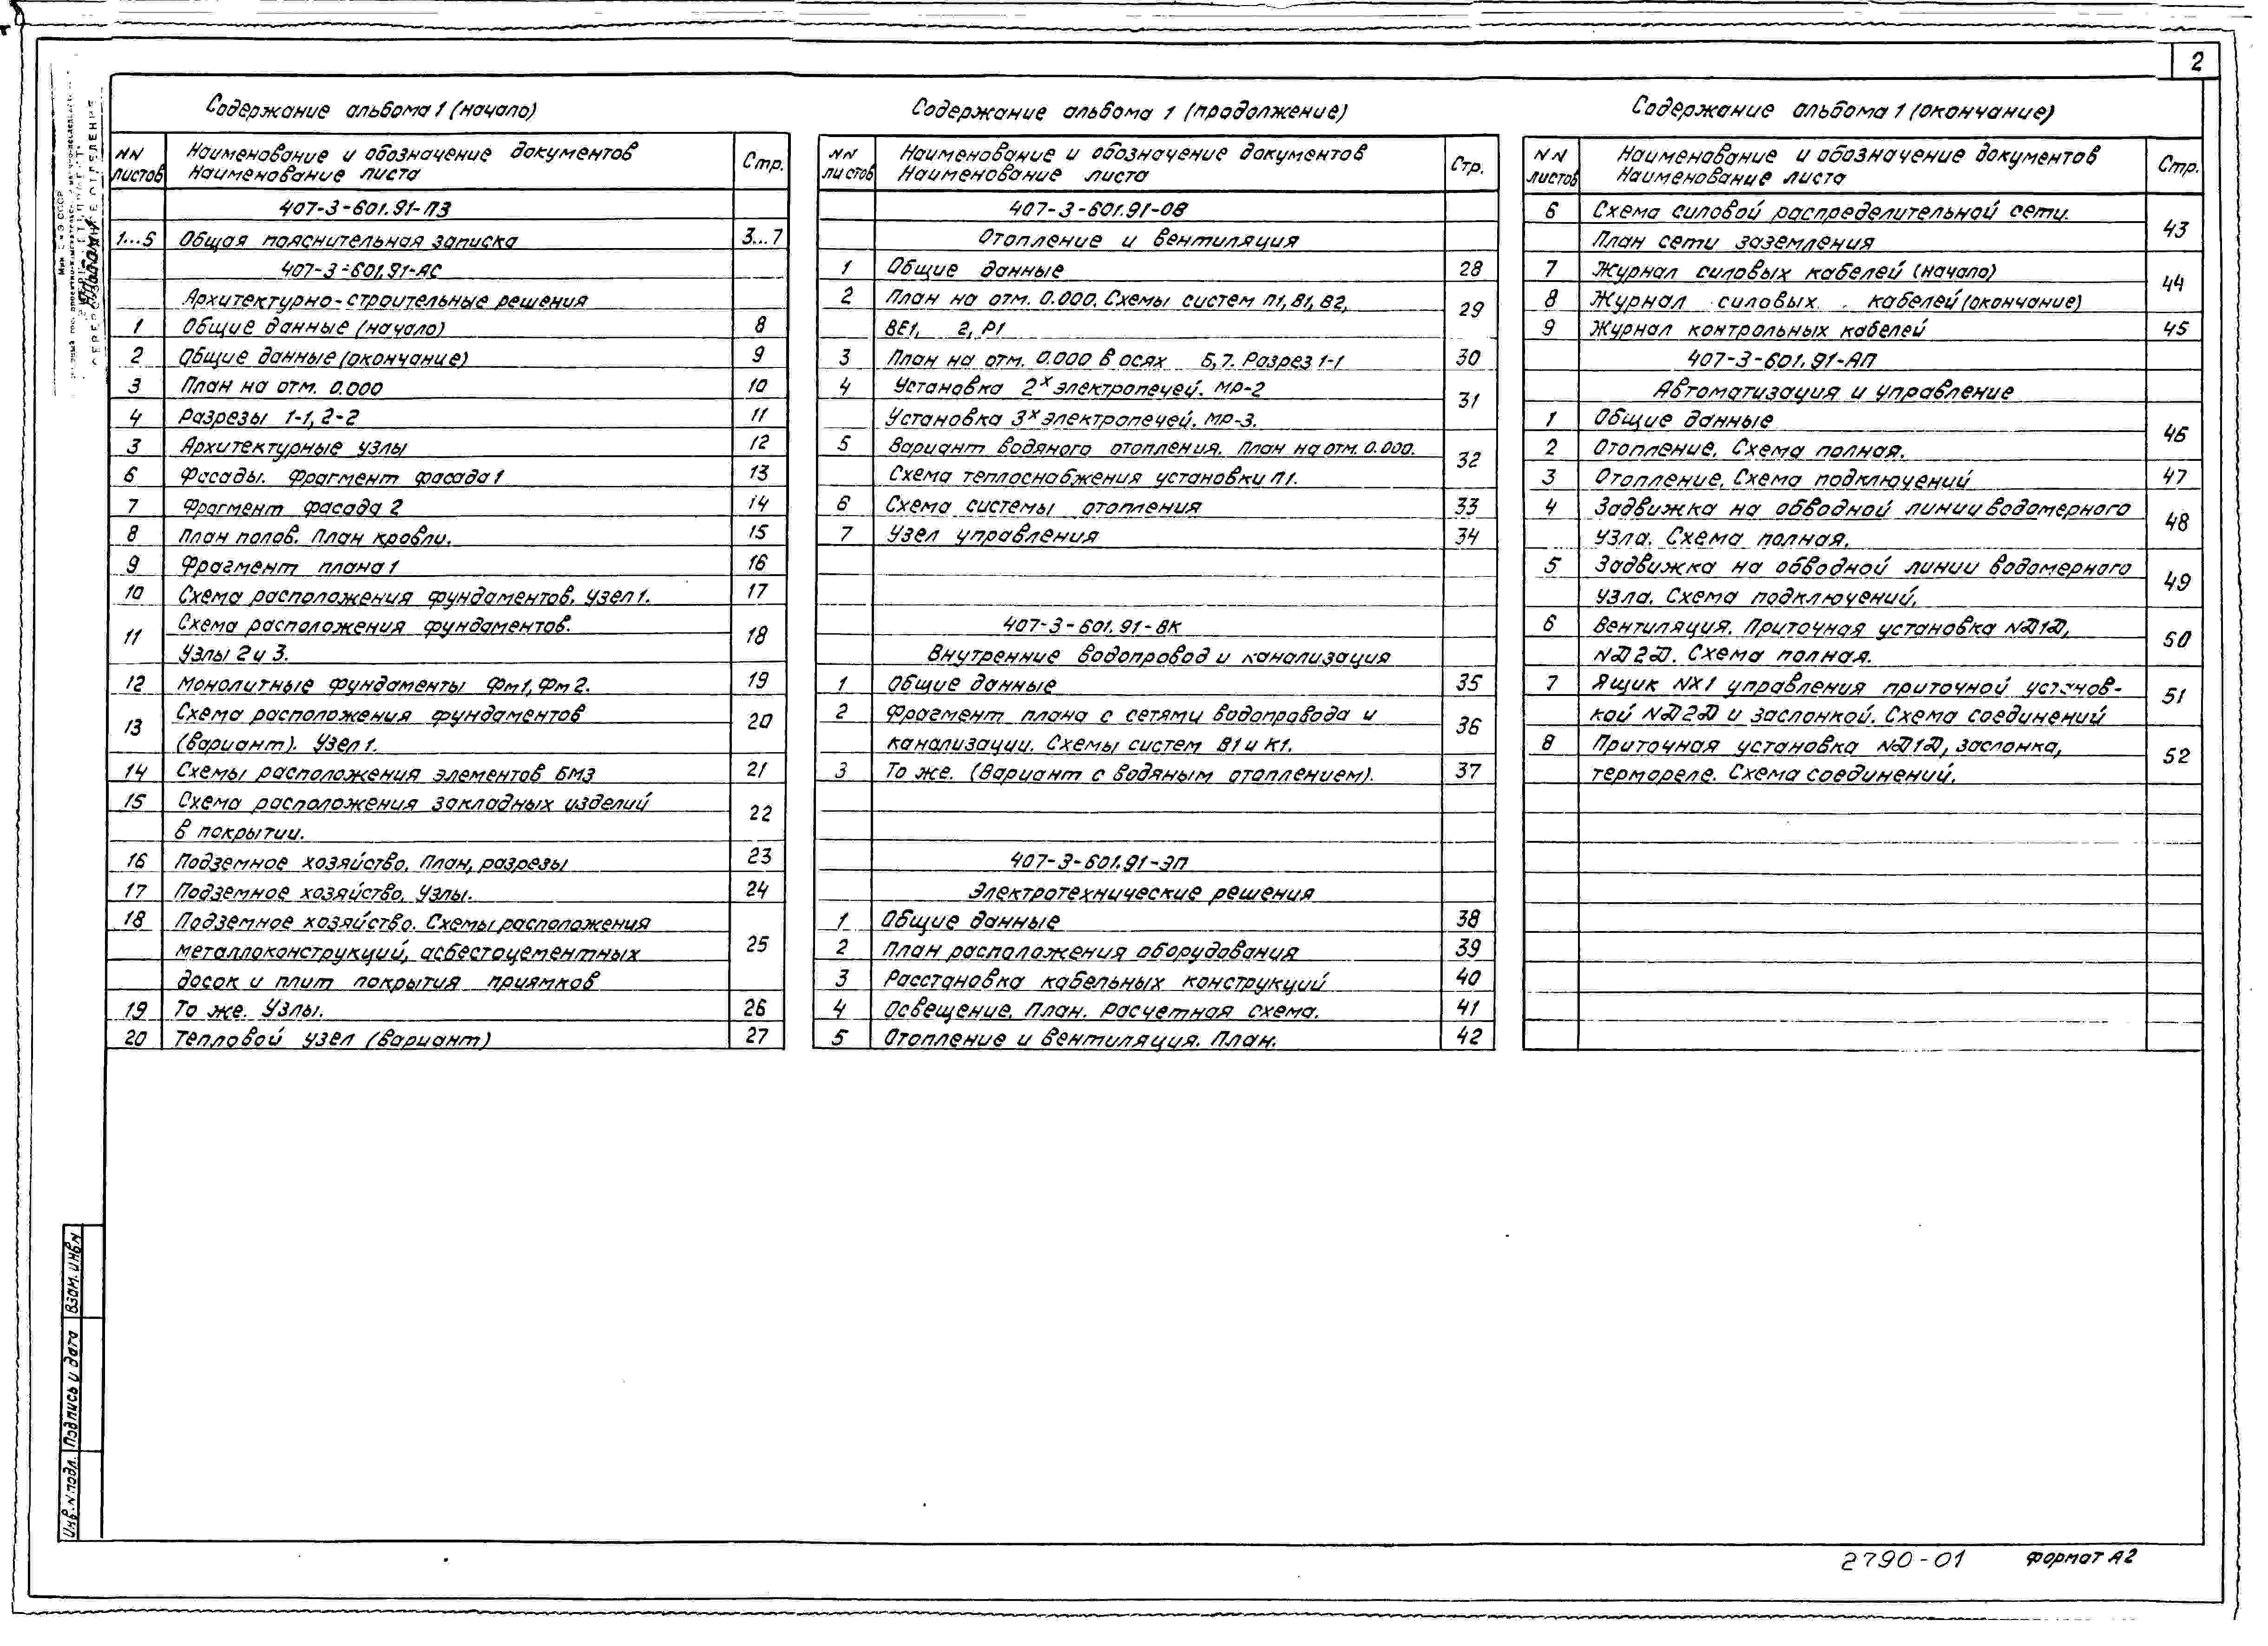 2
Содержание альбома 1 (начало)
NN листов
Наименование и обозначение документов
Наименование листа
Стр.
407-3-601.91-ПЗ
1...5 Общая пояснительная записка 3...7
407-3-601.91-АС
Архитектурно-строительные решения
1 Общие данные (начало) 8
2 Общие данные (окончание) 9
3 План на отм. 0.000 10
4 Разрезы 1-1, 2-2 11
3 Архитектурные узлы 12
6 Фасады. Фрагмент фасада 1 13
7 Фрагмент фасада 2 14
8 План полов. План кровли. 15
9 Фрагмент плана 1 16
10 Схема расположения фундаментов. Узел 1. 17
11 Схема расположения фундаментов. 18
Узлы 2 и 3.
12 Монолитные фундаменты Фм1, Фм2. 19
13 Схема расположения фундаментов 20
(вариант). Узел 1.
14 Схемы расположения элементов БМЗ 21
15 Схема расположения закладных изделий 22
в покрытии.
16 Подземное хозяйство. План, разрезы 23
17 Подземное хозяйство. Узлы. 24
18 Подземное хозяйство. Схемы расположения
металлоконструкций, асбестоцементных 25
досок и плит покрытия приямков
19 То же. Узлы. 26
20 Тепловой узел (вариант) 27
Содержание альбома 1 (продолжение)
NN листов
Наименование и обозначение документов
Наименование листа
Стр.
407-3-601.91-ОВ
Отопление и вентиляция
1 Общие данные 28
2 План на отм. 0.000. Схемы систем П1, В1, В2, 29
ВЕ1, 2, Р1
3 План на отм. 0.000 в осях 6,7. Разрез 1-1 30
4 Установка 2х электропечей. МР-2 31
Установка 3х электропечей. МР-3.
5 Вариант водяного отопления. План на отм. 0.000. 32
Схема теплоснабжения установки П1.
6 Схема системы отопления 33
7 Узел управления 34
407-3-601.91-ВК
Внутренние водопровод и канализация
1 Общие данные 35
2 Фрагмент плана с сетями водопровода и 36
канализации. Схемы систем В1 и К1.
3 То же. (Вариант с водяным отоплением). 37
407-3-601.91-ЭП
Электротехнические решения
1 Общие данные 38
2 План расположения оборудования 39
3 Расстановка кабельных конструкций 40
4 Освещение. План. Расчетная схема. 41
5 Отопление и вентиляция. План. 42
Содержание альбома 1 (окончание)
NN листов
Наименование и обозначение документов
Наименование листа
Стр.
6 Схема силовой распределительной сети. 43
План сети заземления
7 Журнал силовых кабелей (начало) 44
8 Журнал силовых кабелей (окончание)
9 Журнал контрольных кабелей 45
407-3-601.91-АП
Автоматизация и управление
1 Общие данные 46
2 Отопление. Схема полная.
3 Отопление. Схема подключений 47
4 Задвижка на обводной линии водомерного 48
узла. Схема полная.
5 Задвижка на обводной линии водомерного 49
узла. Схема подключений.
6 Вентиляция. Приточная установка 50
Схема полная.
7 Ящик NX1 управления приточной установ- 51
кой и заслонкой. Схема соединений
8 Приточная установка заслонка, 52
термореле. Схема соединений.
Взам. инв N
Подпись и дата
Инв. N подл.
2790-01
Формат А2